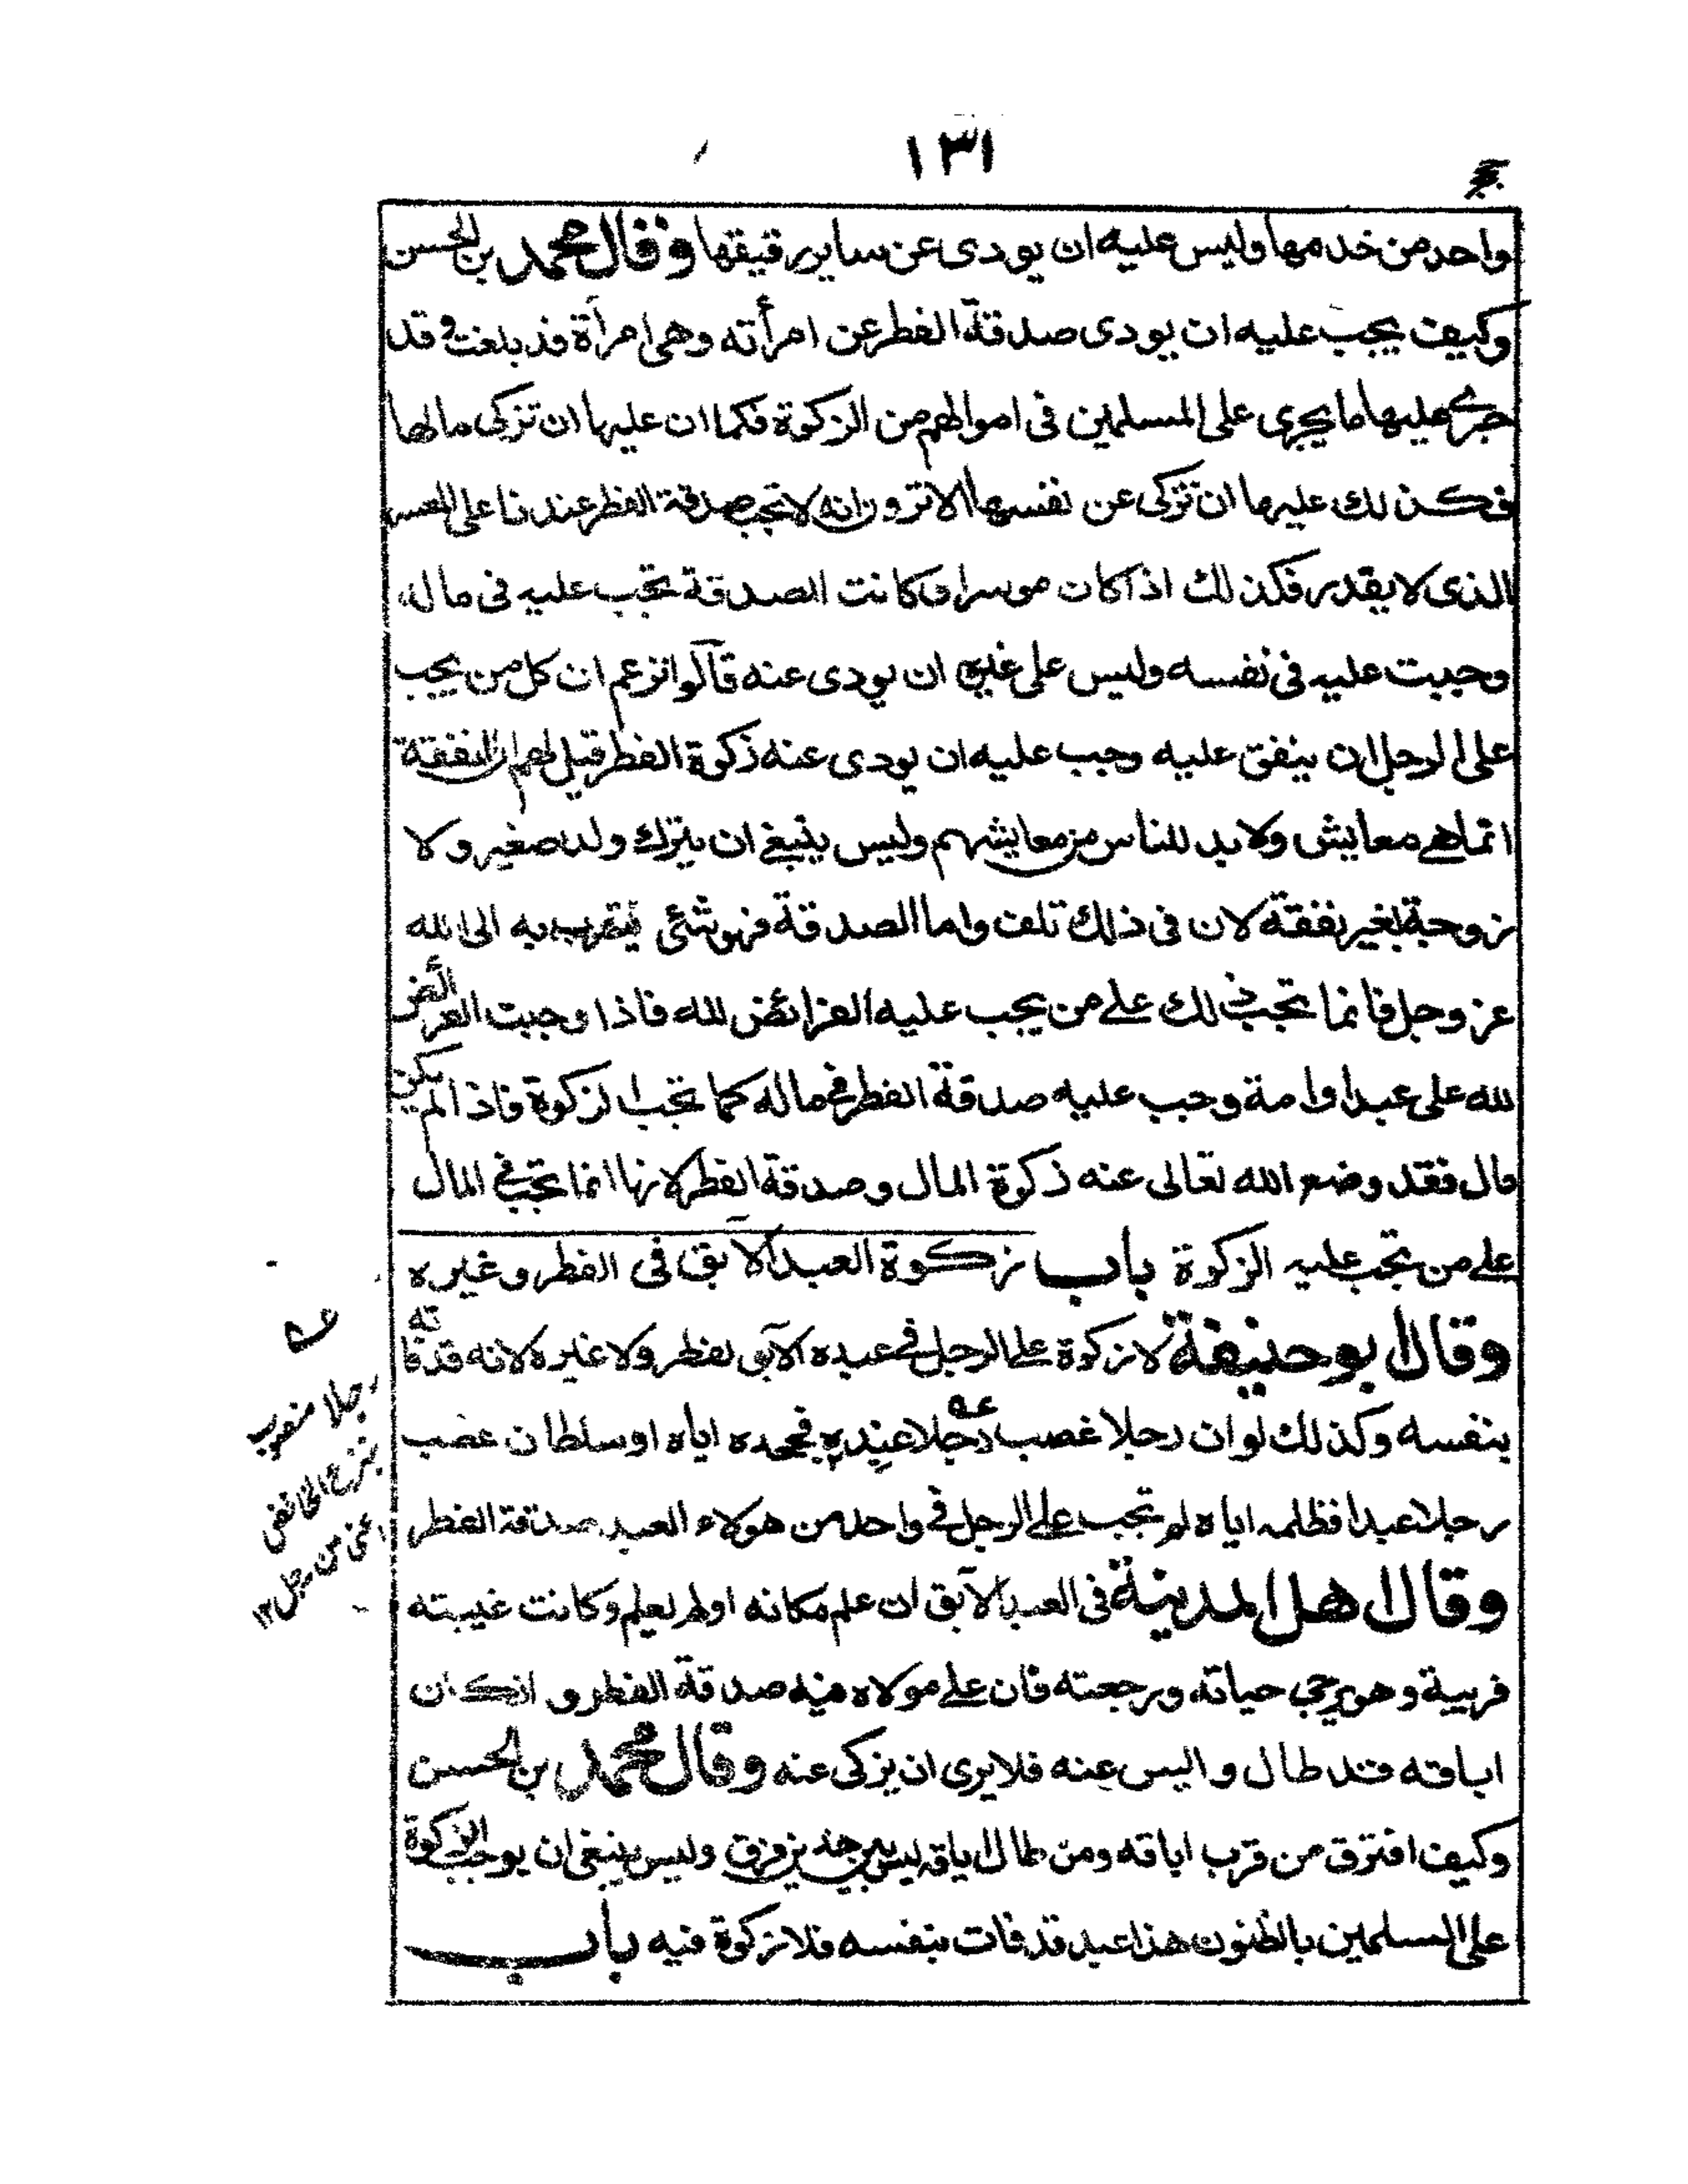 ١٣١
واحد من خدمها وليس عليه ان يودى عن ساير رقيقها وقال محمد بن الحسن
وكيف يجب عليه ان يودى صدقة الفطر عن امرأته وهى امرأة قد بلغت وقد
جرى عليها ما يجرى على المسلمين فى اموالهم من الزكوة فكما ان عليها ان تزكى مالها
فكذلك عليها ان تزكى عن نفسها الا ترون انه لا تجب صدقة الفطر عندنا على المعسر
الذى لا يقدر فكذلك اذا كان موسرا وكانت الصدقة تجب عليه فى ماله
وجبت عليه فى نفسه وليس على غيره ان يودى عنه قالوا نزعم ان كل من يجب
على الرجل ان ينفق عليه وجب عليه ان يودى عنه زكوة الفطر قيل لهم ان النفقة
انما هى معايش ولا بد للناس من معايشهم وليس ينبغى ان يترك ولد صغير ولا
زوجة بغير نفقة لان فى ذلك تلف واما الصدقة فهو شئ يتقرب به الى الله
عز وجل فانما تجب ذلك على من يجب عليه الفرائض لله فاذا وجبت الفرائض
لله على عبد او امة وجب عليه صدقة الفطر فى ماله كما تجب الزكوة فاذا لم يكن
مال فقد وضع الله تعالى عنه زكوة المال وصدقة الفطر لانها انما تجب فى المال
على من تجب عليه الزكوة باب زكوة العبد الآبق فى الفطر وغيره
وقال ابو حنيفة لا زكوة على الرجل فى عبده الآبق لفطر ولا غيره لانه قد فاته
بنفسه وكذلك لو ان رجلا غصب عه رجلا عبده فجحده اياه او سلطان غصب
رجلا عبدا فظلمه اياه لم تجب على الرجل فى واحد من هولاء العبيد صدقة الفطر
وقال اهل المدينة فى العبد الآبق ان علم مكانه او لم يعلم وكانت غيبته
قريبة وهو يرجى حياته ورجعته فان على مولاه فيه صدقة الفطر و ان كان
اباقه قد طال و ايس عنه فلا يرى ان يزكى عنه وقال محمد بن الحسن
وكيف افترق من قرب اباقه ومن طال اباقه ليس بين هذين فرق وليس ينبغى ان يوجب الزكوة
على المسلمين بالظنون هذا عبد قد فات بنفسه فلا زكوة فيه باب
عه
رجلا منصوب
بنزع الخافض
اعنى من رجل ١٢